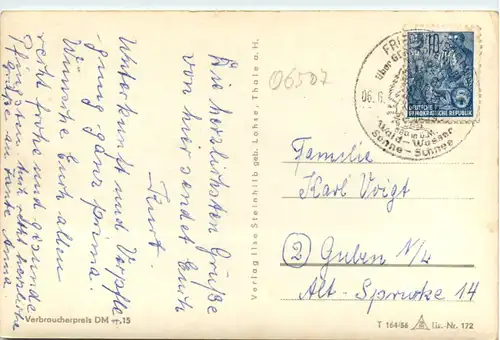 Die herzlichsten Grüße
von hier sendet Euch
Kurt.
Unterkunft und Verpfle
gung ganz prima.
Wünsche Euch allen
recht frohe und gesunde
Pfingsten und recht herzliche
Grüße an Tante Anna.
Verbraucherpreis DM -,15
Verlag Ilse Steinhilb geb. Lohse, Thale a. H.
06507
06.6.
über
m ü.M.
Wald-Wasser
Sonne-Schnee
10
DEUTSCHE
DEMOKRATISCHE REPUBLIK
Familie
Karl Voigt
2 Guben N/L
Alt-Sprucke 14
T 164/56
Liz.-Nr. 172